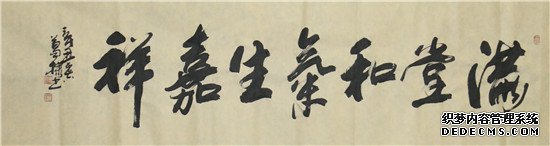 满堂和氣生嘉祥
辛丑春
织梦内容管理系统
DEDECMS.COM